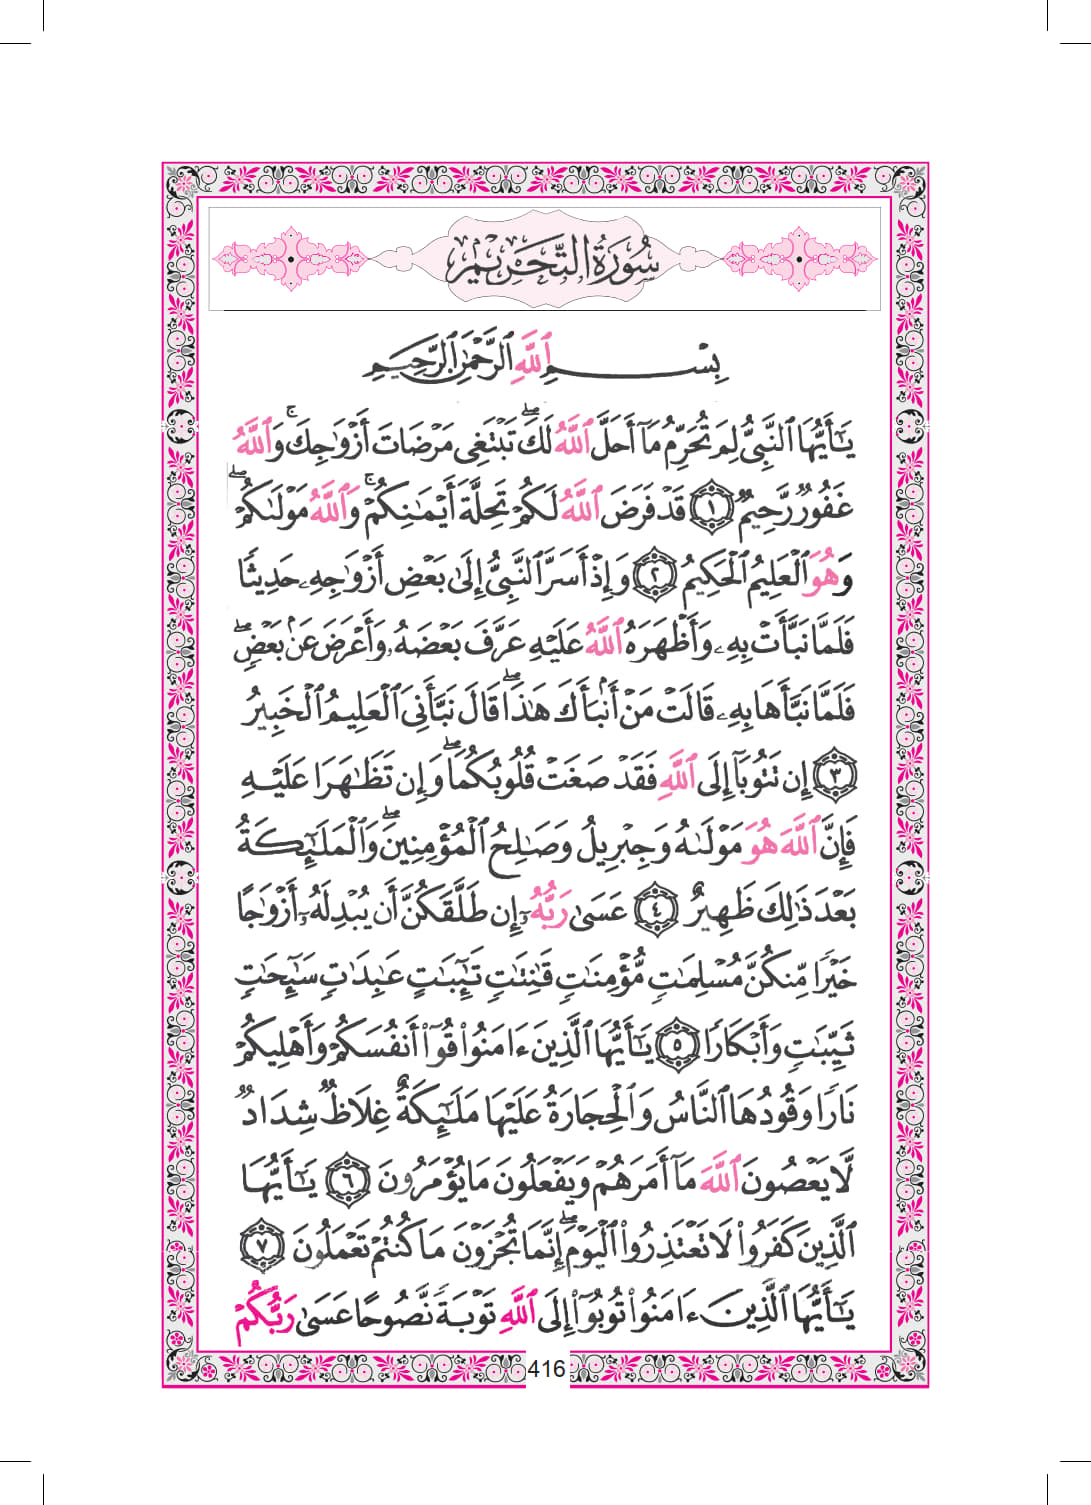 سُورَةُ التَّحْرِيمِ
بِسْمِ ٱللَّهِ ٱلرَّحْمَٰنِ ٱلرَّحِيمِ
يَٰٓأَيُّهَا ٱلنَّبِيُّ لِمَ تُحَرِّمُ مَآ أَحَلَّ ٱللَّهُ لَكَۖ تَبْتَغِى مَرْضَاتَ أَزْوَٰجِكَۚ وَٱللَّهُ
غَفُورٌ رَّحِيمٌ ١ قَدْ فَرَضَ ٱللَّهُ لَكُمْ تَحِلَّةَ أَيْمَٰنِكُمْۚ وَٱللَّهُ مَوْلَىٰكُمْۖ
وَهُوَ ٱلْعَلِيمُ ٱلْحَكِيمُ ٢ وَإِذْ أَسَرَّ ٱلنَّبِيُّ إِلَىٰ بَعْضِ أَزْوَٰجِهِۦ حَدِيثًا
فَلَمَّا نَبَّأَتْ بِهِۦ وَأَظْهَرَهُ ٱللَّهُ عَلَيْهِ عَرَّفَ بَعْضَهُۥ وَأَعْرَضَ عَنۢ بَعْضٍۖ
فَلَمَّا نَبَّأَهَا بِهِۦ قَالَتْ مَنْ أَنۢبَأَكَ هَٰذَاۖ قَالَ نَبَّأَنِىَ ٱلْعَلِيمُ ٱلْخَبِيرُ
٣ إِن تَتُوبَآ إِلَى ٱللَّهِ فَقَدْ صَغَتْ قُلُوبُكُمَاۖ وَإِن تَظَٰهَرَا عَلَيْهِ
فَإِنَّ ٱللَّهَ هُوَ مَوْلَىٰهُ وَجِبْرِيلُ وَصَٰلِحُ ٱلْمُؤْمِنِينَۖ وَٱلْمَلَٰٓئِكَةُ
بَعْدَ ذَٰلِكَ ظَهِيرٌ ٤ عَسَىٰ رَبُّهُۥٓ إِن طَلَّقَكُنَّ أَن يُبْدِلَهُۥٓ أَزْوَٰجًا
خَيْرًا مِّنكُنَّ مُسْلِمَٰتٍ مُّؤْمِنَٰتٍ قَٰنِتَٰتٍ تَٰٓئِبَٰتٍ عَٰبِدَٰتٍ سَٰٓئِحَٰتٍ
ثَيِّبَٰتٍ وَأَبْكَارًا ٥ يَٰٓأَيُّهَا ٱلَّذِينَ ءَامَنُوا۟ قُوٓا۟ أَنفُسَكُمْ وَأَهْلِيكُمْ
نَارًا وَقُودُهَا ٱلنَّاسُ وَٱلْحِجَارَةُ عَلَيْهَا مَلَٰٓئِكَةٌ غِلَاظٌ شِدَادٌ
لَّا يَعْصُونَ ٱللَّهَ مَآ أَمَرَهُمْ وَيَفْعَلُونَ مَا يُؤْمَرُونَ ٦ يَٰٓأَيُّهَا
ٱلَّذِينَ كَفَرُوا۟ لَا تَعْتَذِرُوا۟ ٱلْيَوْمَۖ إِنَّمَا تُجْزَوْنَ مَا كُنتُمْ تَعْمَلُونَ ٧
يَٰٓأَيُّهَا ٱلَّذِينَ ءَامَنُوا۟ تُوبُوٓا۟ إِلَى ٱللَّهِ تَوْبَةً نَّصُوحًا عَسَىٰ رَبُّكُمْ
416